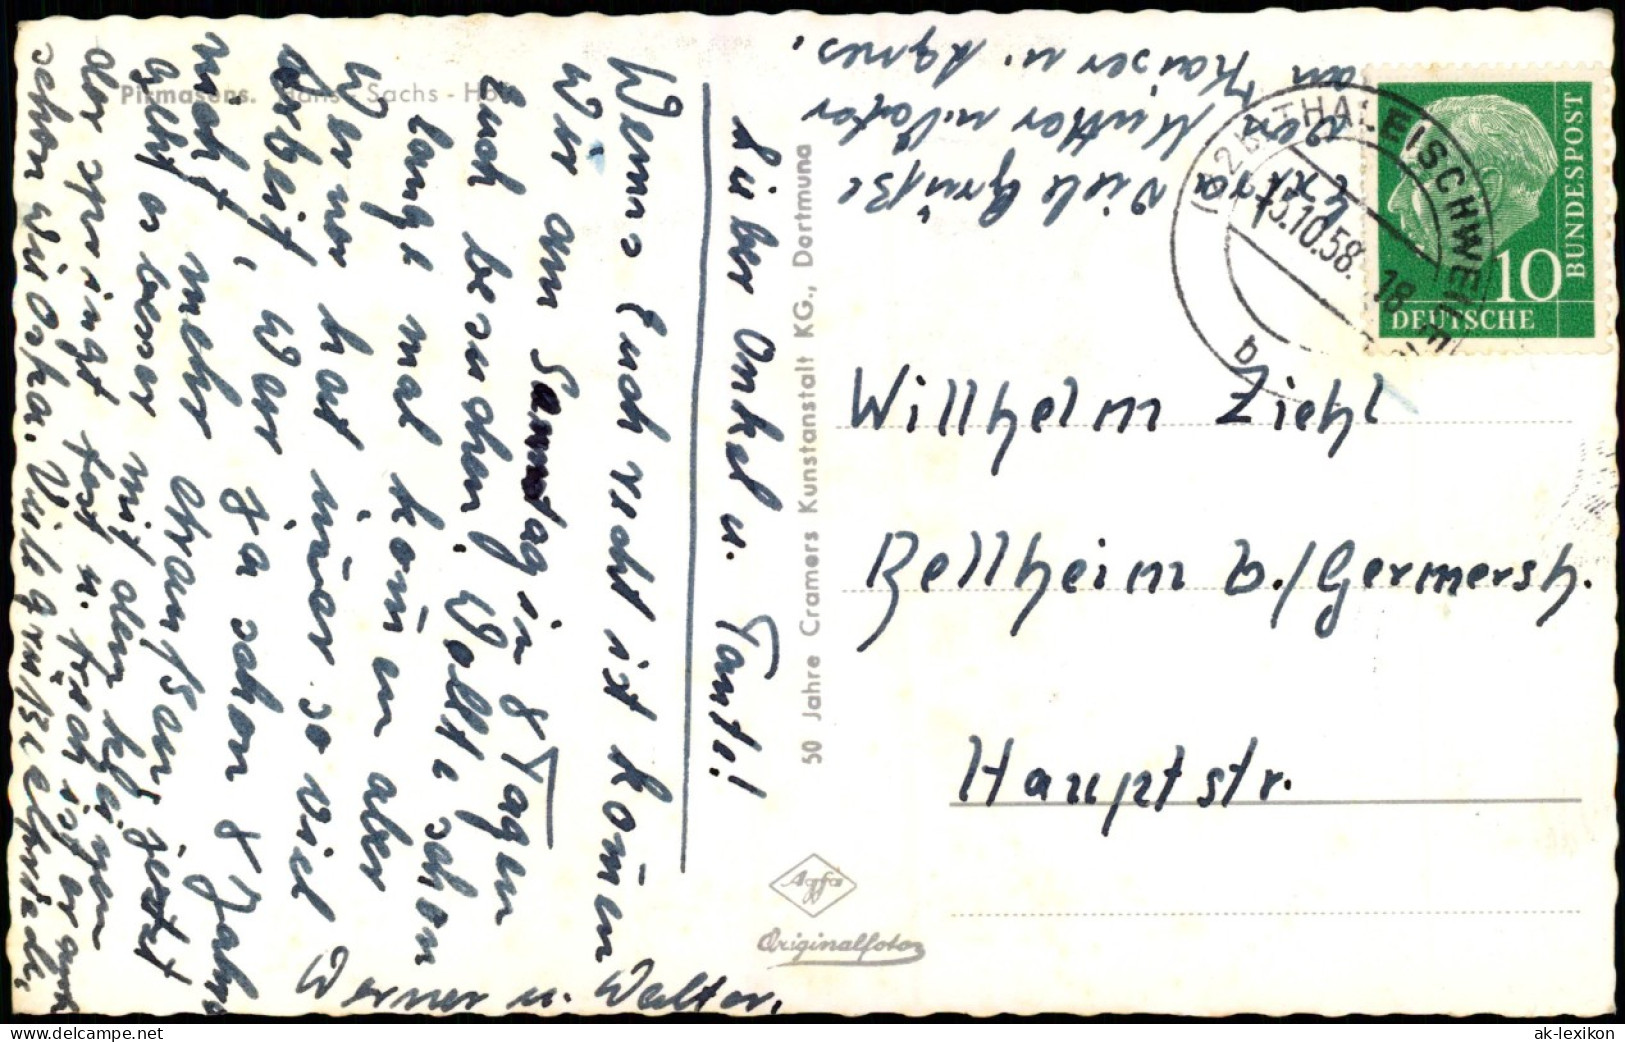 Pirmasens. Hans - Sachs - Hof
Lieber Onkel u. Tante!
Wenns Euch recht ist kom̄en
Wir am Samstag in 8 Tagen
Euch besuchen. Wollte schon
lange mal kom̄en aber
Werner hat im̄er so viel
Arbeit, War ja schon 8 Jahre
nicht mehr draußen, jetzt
geht es besser mit dem kleinen
der springt fest u. frech ist er auch
schon wie Oskar. Viele grüße
Werner u. Walter.
Viele Grüße
Extra von Mutter u. Vater
an Kaiser u. Agnes.
50 Jahre Cramers Kunstanstalt KG., Dortmund
Agfa
Originalfoto
(22b) THALEISCHWEILER
15.10.58. 18
b
DEUTSCHE
BUNDESPOST
10
Willhelm Ziehl
Bellheim b./Germersh.
Hauptstr.
www.delcampe.net
ak-lexikon